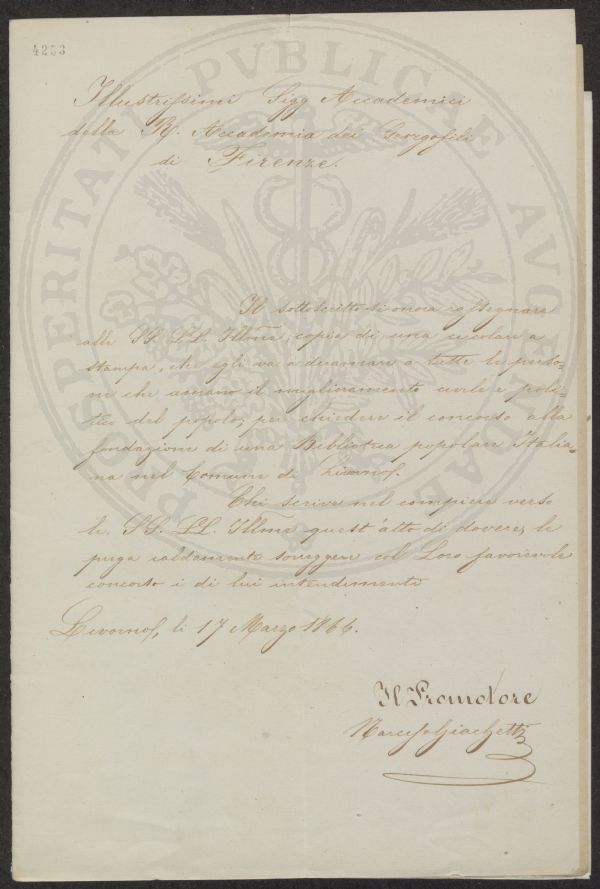 4253
Illustrissimi Sigg Accademici
della R. Accademia dei Georgofili
di Firenze.
Il sottoscritto si onora rassegnare
alle SS. LL. Illme, copia di una circolare a
stampa, che egli va a diramare a tutte le perso-
ne che amano il miglioramento civile e poli-
tico del popolo, per chiedere il concorso alla
fondazione di una Biblioteca popolare Italia-
na nel Comune di Livorno.
Chi scrive nel compiere verso
le SS. LL. Illme quest'atto di dovere, le
prega caldamente sorreggere col Loro favorevole
concorso i di lui intendimenti
Livorno, li 17 Marzo 1866.
Il Promotore
Narciso Giachetti
PROSPERITATI PVBLICAE AVGENDAE